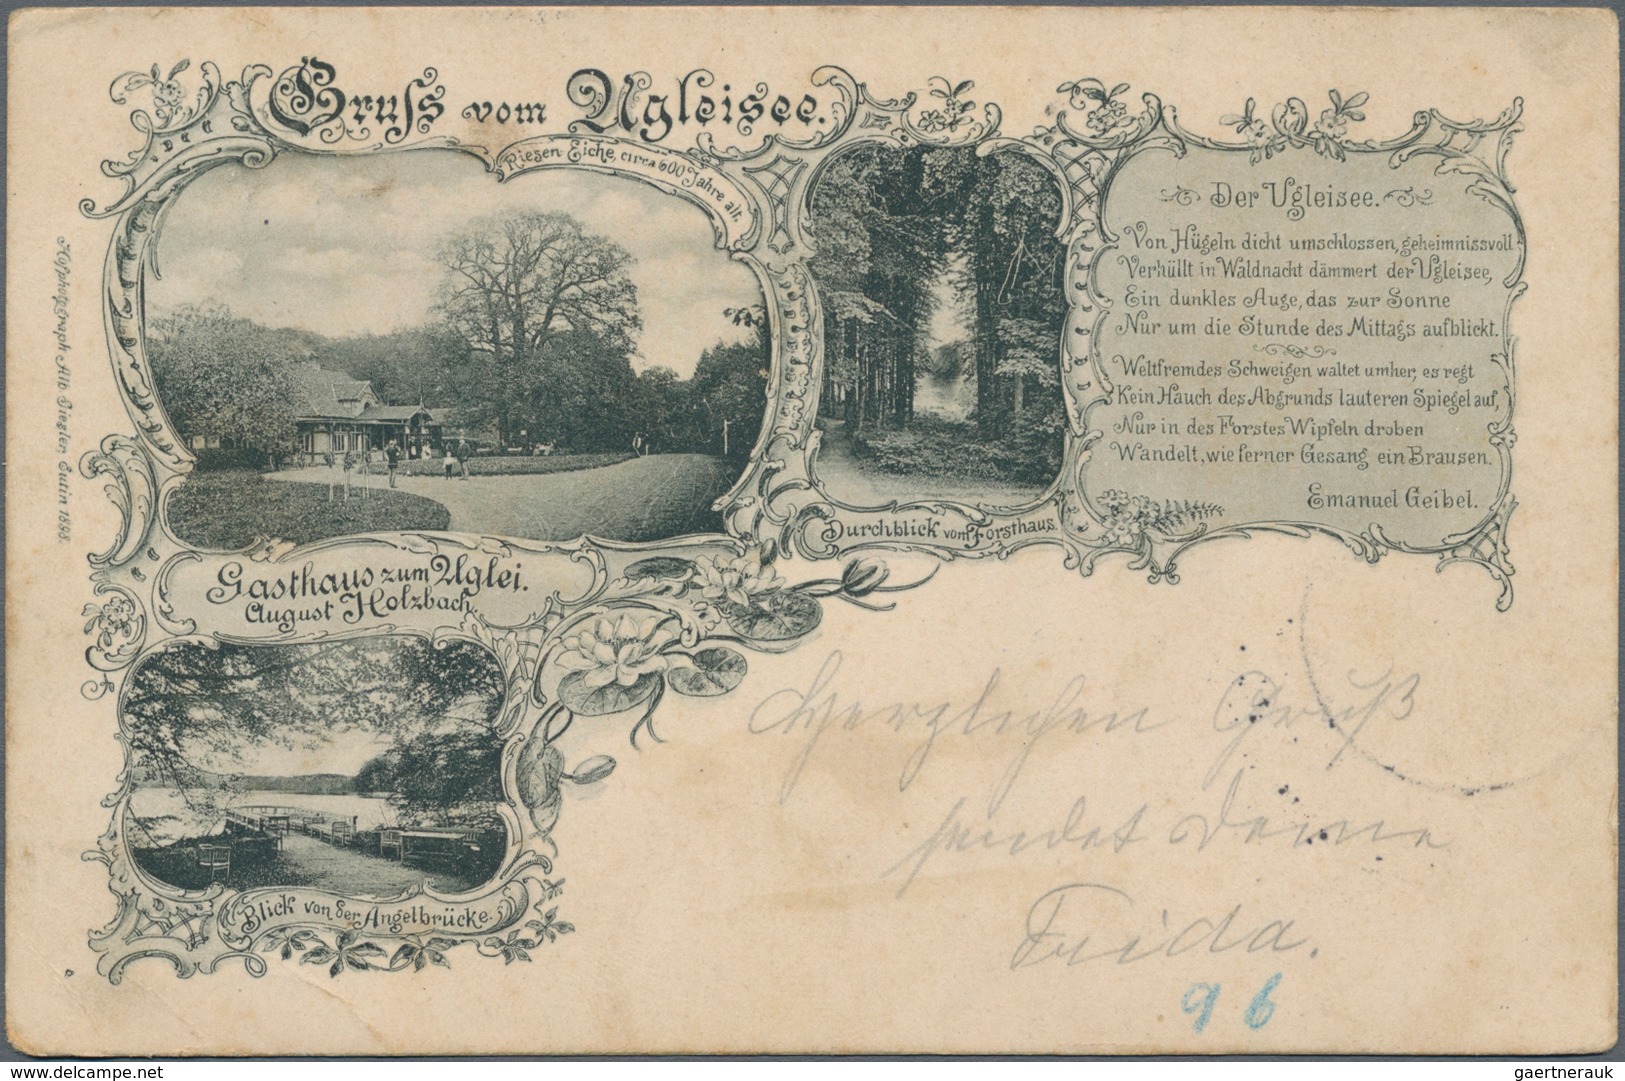 Gruſs vom Ugleisee.
Riesen Eiche, circa 600 Jahre alt.
Der Ugleisee.
Von Hügeln dicht umschlossen, geheimnissvoll
Verhüllt in Waldnacht dämmert der Ugleisee,
Ein dunkles Auge, das zur Sonne
Nur um die Stunde des Mittags aufblickt.
Weltfremdes Schweigen waltet umher, es regt
Kein Hauch des Abgrunds lauteren Spiegel auf,
Nur in des Forstes Wipfeln droben
Wandelt, wie ferner Gesang ein Brausen.
Emanuel Geibel.
Durchblick vom Forsthaus.
Gasthaus zum Uglei.
August Holzbach.
Blick von der Angelbrücke.
Hofphotograph Alb Giegler, Eutin 1898.
Herzlichen Gruß
sendet Deine
Frida.
96
www.delcampe.net
gaertnerauk